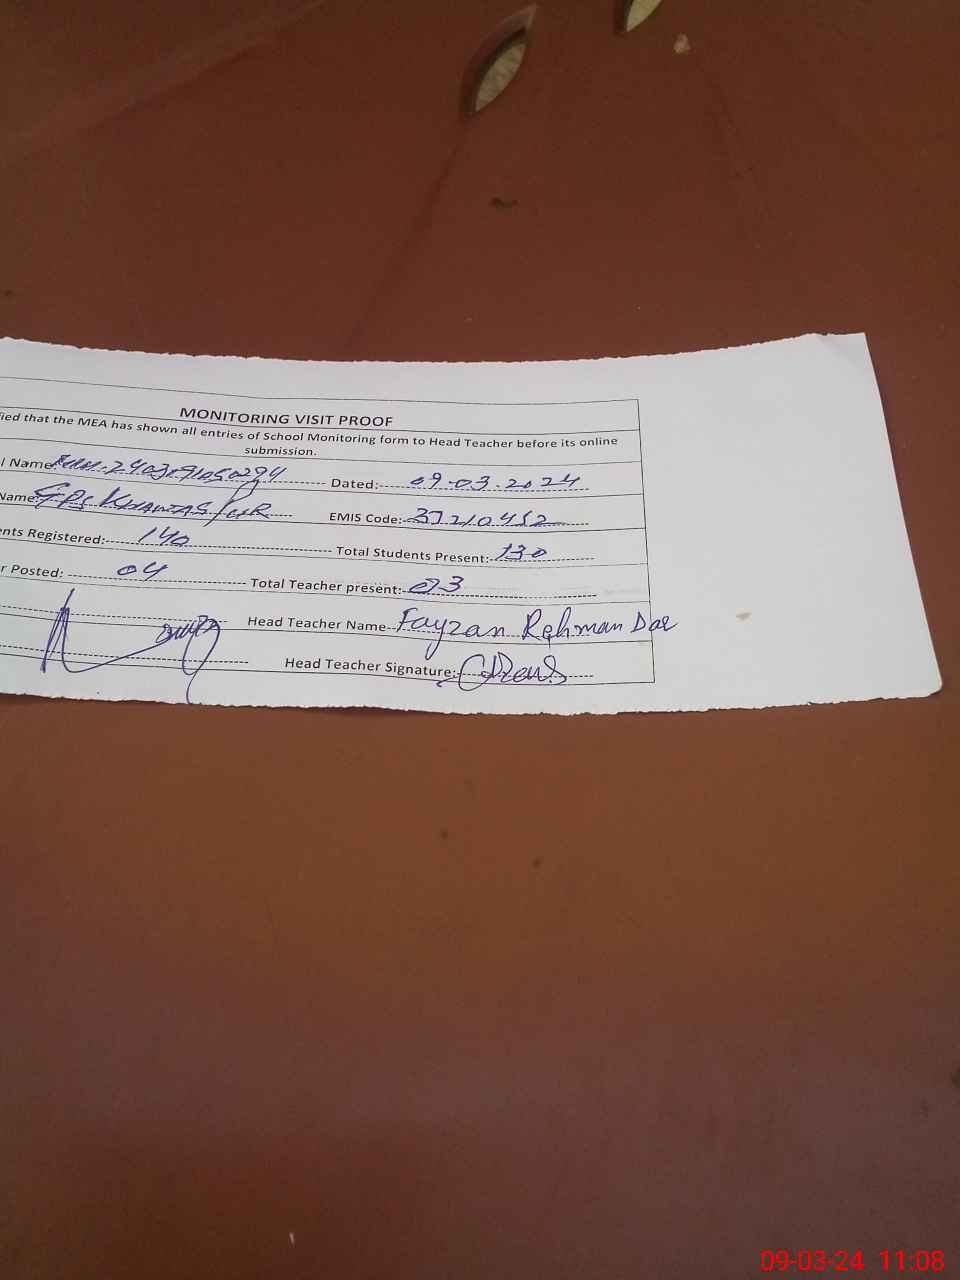 MONITORING VISIT PROOF
fied that the MEA has shown all entries of School Monitoring form to Head Teacher before its online
submission.
l Name Dated: 09-03-2024
Name: GPS KHANTAS/ EMIS Code: 37210452
ents Registered: 140 Total Students Present: 130
r Posted: 04 Total Teacher present: 03
Head Teacher Name Fayzan Rehman Dar
Head Teacher Signature:
09-03-24 11:08